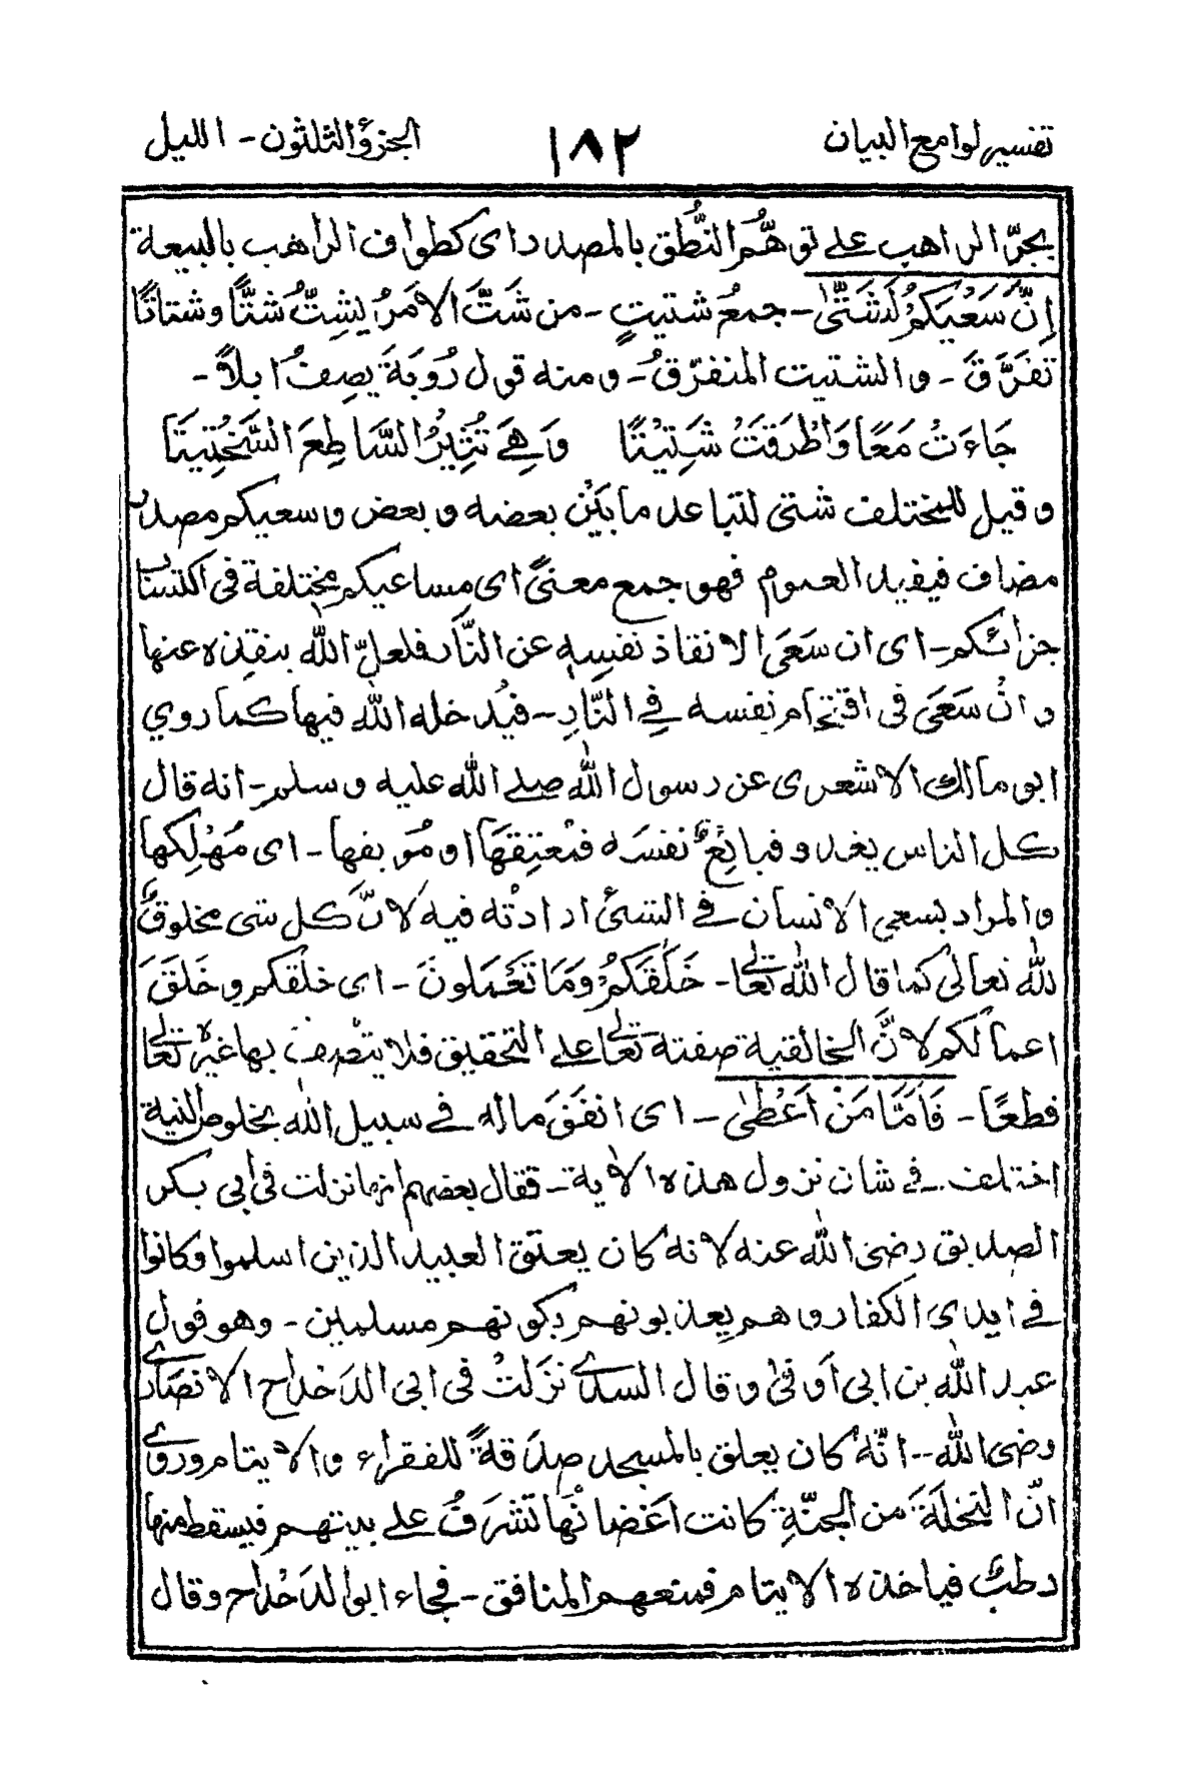 تفسير لوامع البيان ١٨٢ الجزؤ الثلثون - الليل
بجرّ الراهب على توهُّم النُّطق بالمصدر اى كطواف الراهب بالبيعة
اِنَّ سَعْيَكُمْ لَشَتّٰى - جمعُ شتيتٍ - من شَتَّ الامَرُ يشِتُّ شتًّا وشتاتًا
تفَرَّقَ - والشتيت المتفرّقُ - ومنه قول رُوبَةَ يصِفُ ابلًا -
جَاءَتْ مَعًا وَاطْرَقَتْ شَتِيْتًا وَهِىَ تُثِيْرُ السَّاطِعَ السَّخْتِيتَا
وقيل للمختلف شتى لتباعد ما بَيْن بعضه وبعض وسعيكم مصدر
مضاف فيفيد العموم فهو جمع معنىً اى مساعيكم مختلفة فى اكتساب
جزائكم - اى ان سَعَى الانقاذ نفسِه عن النَّار فلعلّ الله ينقذه عنها
وانْ سَعَى فى اقتحام نفسه فِى النَّارِ - فيُدخله الله فيها كما روي
ابو مالك الاشعرى عن رسول الله صلى الله عليه وسلم - انه قال
كل الناس يغدو فبائِعٌ نفسَه فمْعتِقهَا او مُوبقها - اى مُهْلِكها
والمراد بسعي الانسان فى الشئ ارادتْه فيه لانَّ كل شى مخلوقٌ
لله تعالى كما قال الله تعالى - خَلَقَكُمْ وَمَا تَعْمَلونَ - اى خلَقكم وخَلَقَ
اعمالَكم لانَّ الخالقية صفته تعالى على التحقيق فلا يتّصِف بها غيرُه تعالى
قطعًا - فَاَمَّا مَنْ اَعْطٰى - اى انفَقَ ماله فى سبيل الله بخلوص النية
اختلف فى شان نزول هذه الأية - فقال بعضهم انها نزلت فى ابى بكر
الصديق رضى الله عنه لانه كان يعتق العبيد الذين اسلموا وكانوا
فى ايدى الكفار وهم يعذبونهم بكونهم مسلمين - وهو قول
عبد الله بن ابى اوفى وقال السدى نزَلتْ فى ابى الدَحْداح الانصارى
رضى الله - انّه كان يعلق بالمسجد صدَقةً للفقراء والايتام وروى
انّ النخلةَ من الجنّةِ كانت اَغْضانُها تَشرَفُ على بيتهم فيسقط منها
رطبٌ فياخذه الايتام فمنعهم المنافق - فجاء ابو الدَحْداح وقال